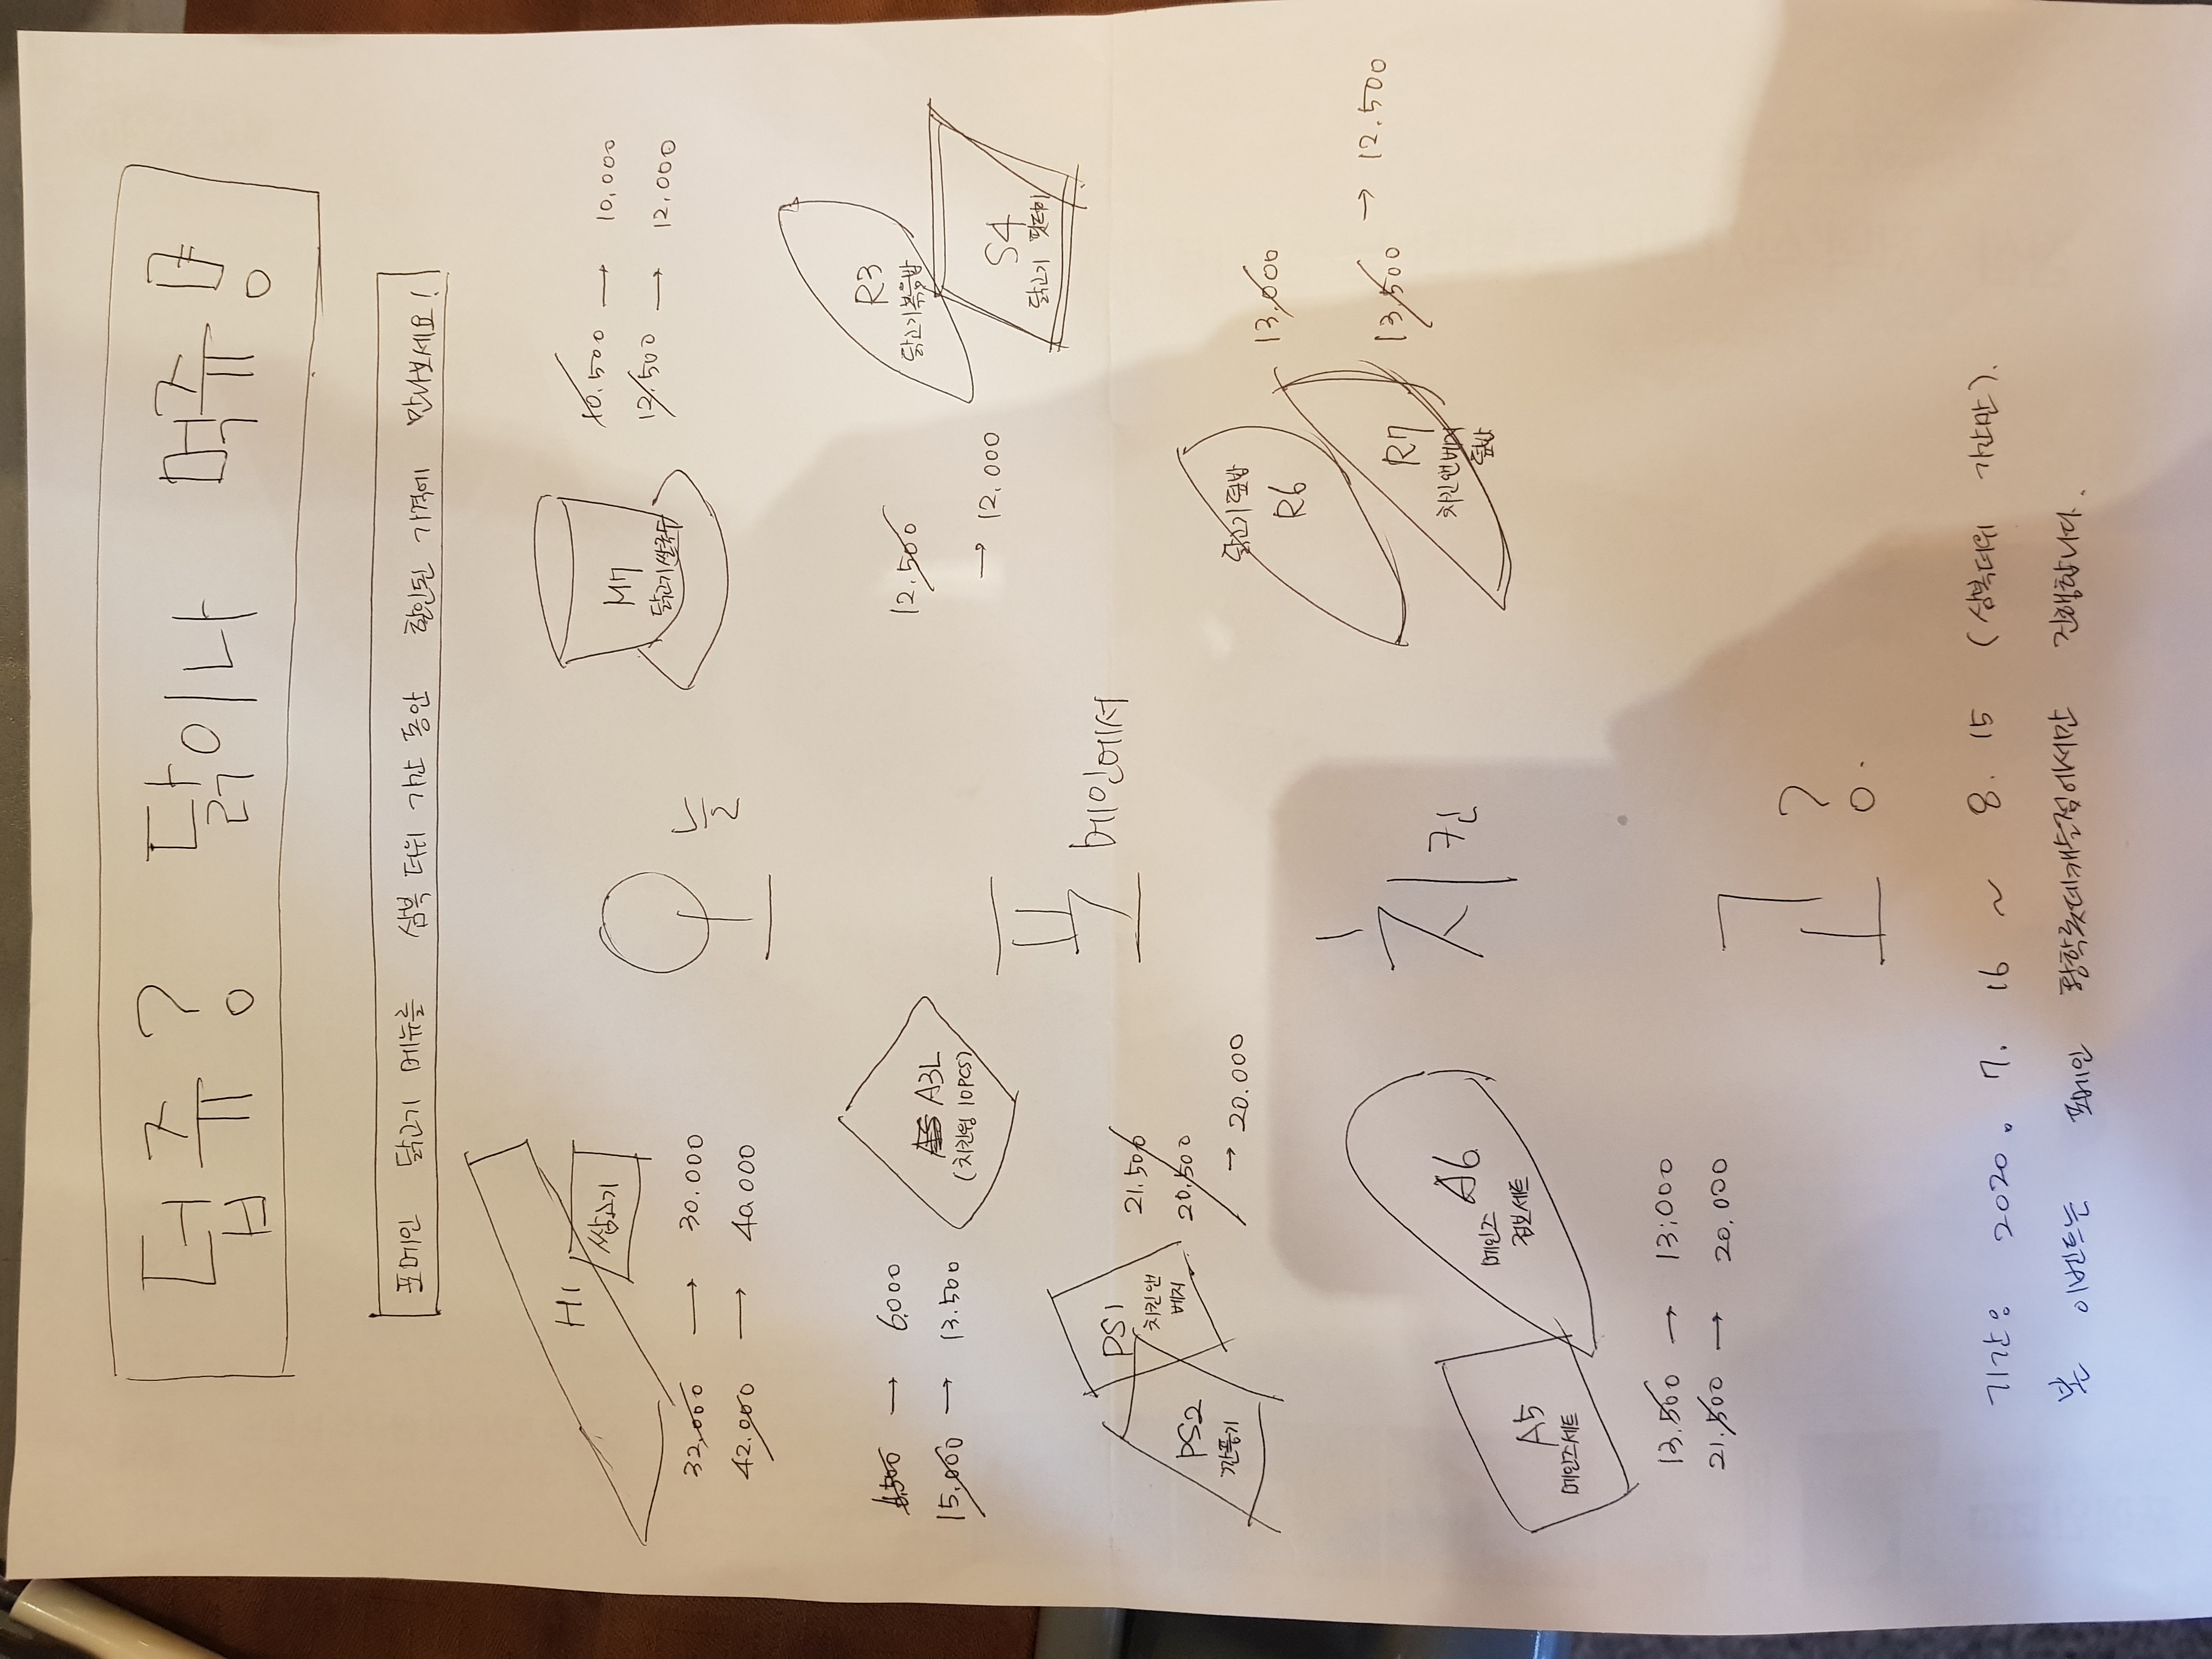 덥쥬? 닭이나 먹쥬!
포메인 닭고기 메뉴를 삼복 더위 기간 동안 할인된 가격에 만나보세요!
H1
쌈고기
32,000 → 30.000
42.000 → 40.000
오늘
M7
닭고기쌀국수
10.500 → 10,000
12.500 → 12,000
6,500 → 6,000
15,000 → 13.500
A3L
(치킨윙 10PCS)
R3
닭고기볶음밥
S4
닭고기 팟타이
12.500
→ 12.000
포메인에서
PS1
치킨앤
베지
PS2
깐풍기
21.500
20.500
→ 20.000
닭고기덮밥
R6
R7
치킨앤베지
덮밥
13.000
13.500 → 12.500
치킨
A6
메인즈
점보세트
A5
메인즈세트
13.500 → 13,000
21.500 → 20,000
고?
기간: 2020. 7. 16 ~ 8. 15 (삼복더위 기간만).
본 이벤트는 포메인 황학롯데캐슬점에서만 진행합니다.